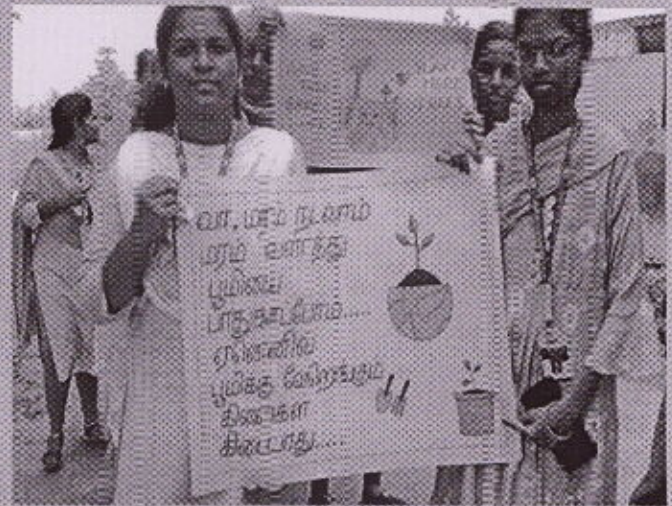 வா, மரம் நடலாம்
மரம் வளர்த்து
பூமியை
பாதுகாப்போம்.....
ஏனெனில்
பூமிக்கு வேறெங்கும்
கிளைகள்
கிடையாது.....